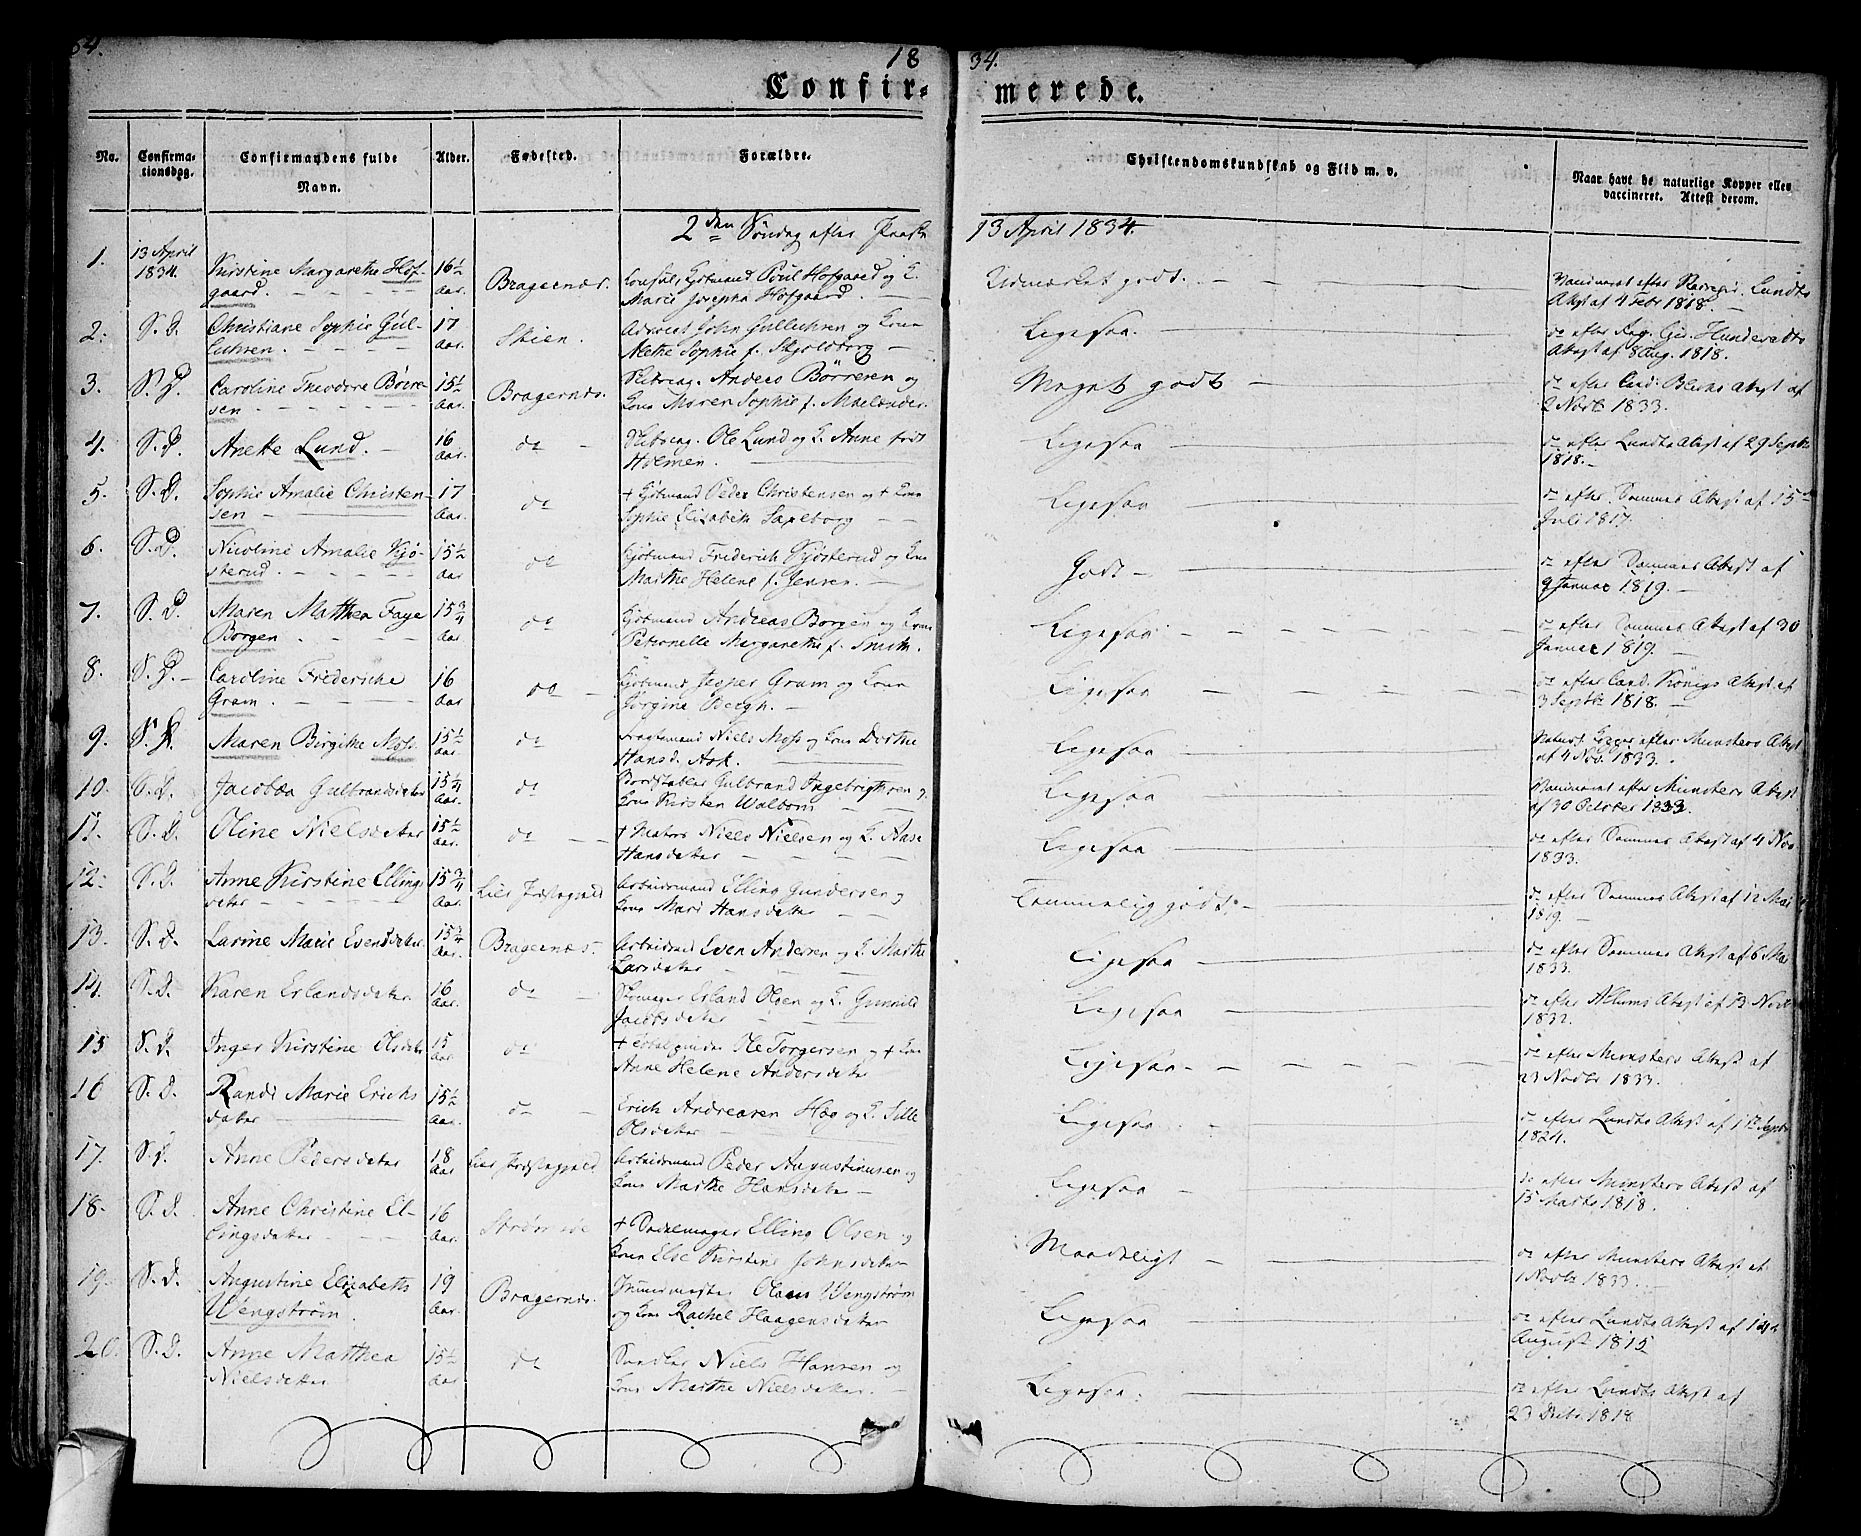 84.
18
34.
Confir-
merede.
No.
Confirma-
tionsdag.
Confirmandens fulde
Navn.
Alder.
Fødested.
Forældre.
Christendomskundskab og Flid m. v.
Naar havt de naturlige Kopper eller
vaccineret. Attest derom.
2den Søndag efter Paaske
13 April 1834.
1.
13 April
1834.
Kirstine Margarethe Hof-
gaard.
16½
Aar.
Bragernæs.
Consul, Kjøbmand Poul Hofgaard og K.
Marie Josepha Hofgaard.
Udmærket godt.
Vaccineret efter Lundts
Attest af 4 Febr 1818.
2.
S. D.
Christiane Sophie Gul-
lichsen.
17
Aar.
Skien.
John Gullichsen og Kone
Sophie f.
Ligesaa.
do efter
Attest af 8 Aug. 1818.
3.
S. D.
Caroline Theodore Børre-
sen
15½
Aar.
Bragernæs.
Anders Børresen og
Kone Maren Sophie f. Maelænder.
Meget godt
do efter Attest af
2 Novb 1833.
4.
S. D.
Anette Lund.
16
Aar.
do
Ole Lund og K. Anne født
Holmen.
Ligesaa
do efter Lundts Attest af 29 Septb
1818.
5.
S. D.
Sophie Amalie Christen-
sen
17
Aar.
do
+ Kjøbmand Peder Christensen og + Kone
Sophie Elizabeth Saxeborg
Ligesaa
do efter Sommes Attest af 15
Juli 1817.
6.
S. D.
Nicoline Amalie Kjø-
sterud.
15½
Aar
do
Kjøbmand Frederich Kjøsterud og Kone
Marthe Helene f. Jensen.
Godt
do efter Sommes Attest af
9 Januar 1819.
7.
S. D.
Maren Matthea Faye
Borgen.
15¾
Aar
do
Kjøbmand Andreas Borgen og Kone
Petronelle Margarethe f. Smith.
Ligesaa
do efter Sommes Attest af 30
Januar 1819.
8.
S. D.
Caroline Friderike
Gram.
16
Aar
do
Kjøbmand Jesper Gram og Kone
Jørgine Bergh.
Ligesaa
do efter Cand. Königs Attest af
3 Septb 1818.
9.
S. D.
Maren Birgitte Moss.
15½
Aar.
do
Fragtemand Niels Moss og Kone Dorthe
Hansd. Ask.
Ligesaa
Naturl. Kopper efter Munsters Attest
af 4 Nov. 1833.
10.
S. D.
Jacobæa Gulbrandsdatter
15¼
Aar.
do
Bordstabler Gulbrand Ingebrigtsen og
Kone Kirsten Walbom
Ligesaa
Vaccineret efter Munsters Attest
af 30 October 1833.
11.
S. D.
Oline Nielsdatter
15½
Aar.
do
+ Matros Niels Nielsen og K. Aase
Hansdatter
Ligesaa
do efter Sommes Attest af 4 Nov
1833.
12.
S. D.
Anne Kirstine Ellings
datter
15¾
Aar.
Lier Præstegjeld
Arbeidsmand Elling Gundersen og
Kone Mari Hansdatter
Temmelig godt.
do efter Sommes Attest af 12 Mai
1819.
13.
S. D.
Larine Marie Evensdatter
15¾
Aar.
Bragernæs.
Arbeidsmd Even Andersen og K. Marthe
Larsdatter
Ligesaa
do efter Sommes Attest af 16 Mai
1833.
14.
S. D.
Karen Erlandsdatter
16
Aar.
do
Skomager Erland Olsen og K. Gunnild
Jacobsdatter
Ligesaa
do efter Attest af 13 Novb
1832.
15
S. D.
Inger Kirstine Olsdatter
15
Aar
do
+ Ole Torgersen og + Kone
Anne Helene Andersdatter
Ligesaa
do efter Munsters Attest af
23 Novbr 1833.
16
S. D.
Randi Marie Erichs
datter
15½
Aar.
do
Erich Andreasen Hæg og K. Sille
Olsdatter
Ligesaa
do efter Lundts Attest af 1te Septbr
1824.
17.
S. D.
Anne Pedersdatter
18
Aar
Lier Præstegjeld
Arbeidsmand Peder Augustinusen og
Kone Marthe Hansdatter
Ligesaa
do efter Munsters Attest af
15 Marts 1818.
18.
S. D.
Anne Christine El-
lingsdatter
16
Aar.
Strømsøe
+ Sadelmager Elling Olsen og
Kone Else Kirstine Johnsdatter
Maadeligt
do efter Munsters Attest af
1 Novb 1833.
19.
S. D.
Augustine Elizabeth
Wengstrøm.
19
Aar.
Bragernæs.
Olaus Wengstrøm
og Kone Rachel Haagensdatter
Ligesaa
do efter Lundts Attest af 14de
August 1815
20.
S. D.
Anne Matthea
Nielsdatter
15½
Aar.
do
Snedker Niels Hansen og
Kone Marthe Nielsdatter.
Ligesaa.
do efter Lundts Attest af
23 Decbr 1818